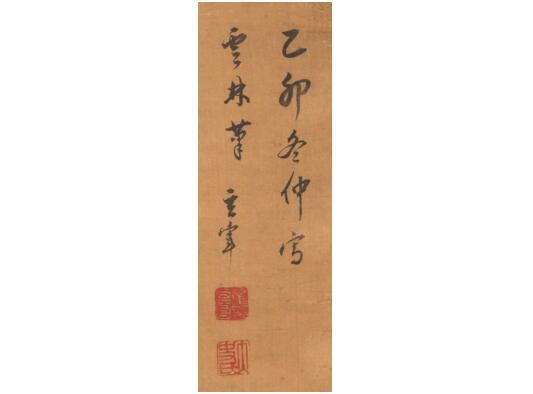 乙卯冬仲寫
雲林筆 玄宰